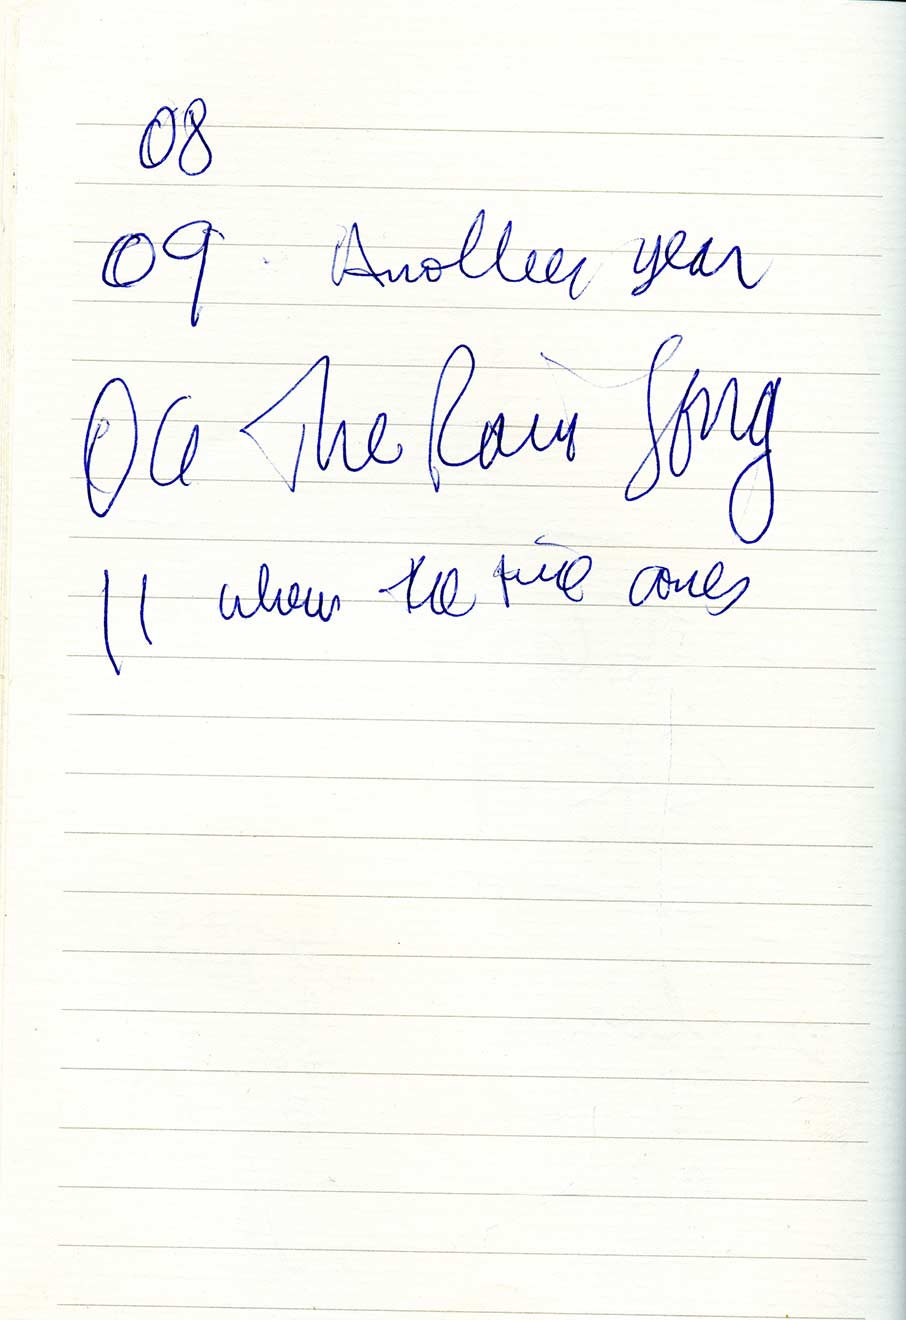 08
09 Another year
06 The Rain Song
11 when the time comes